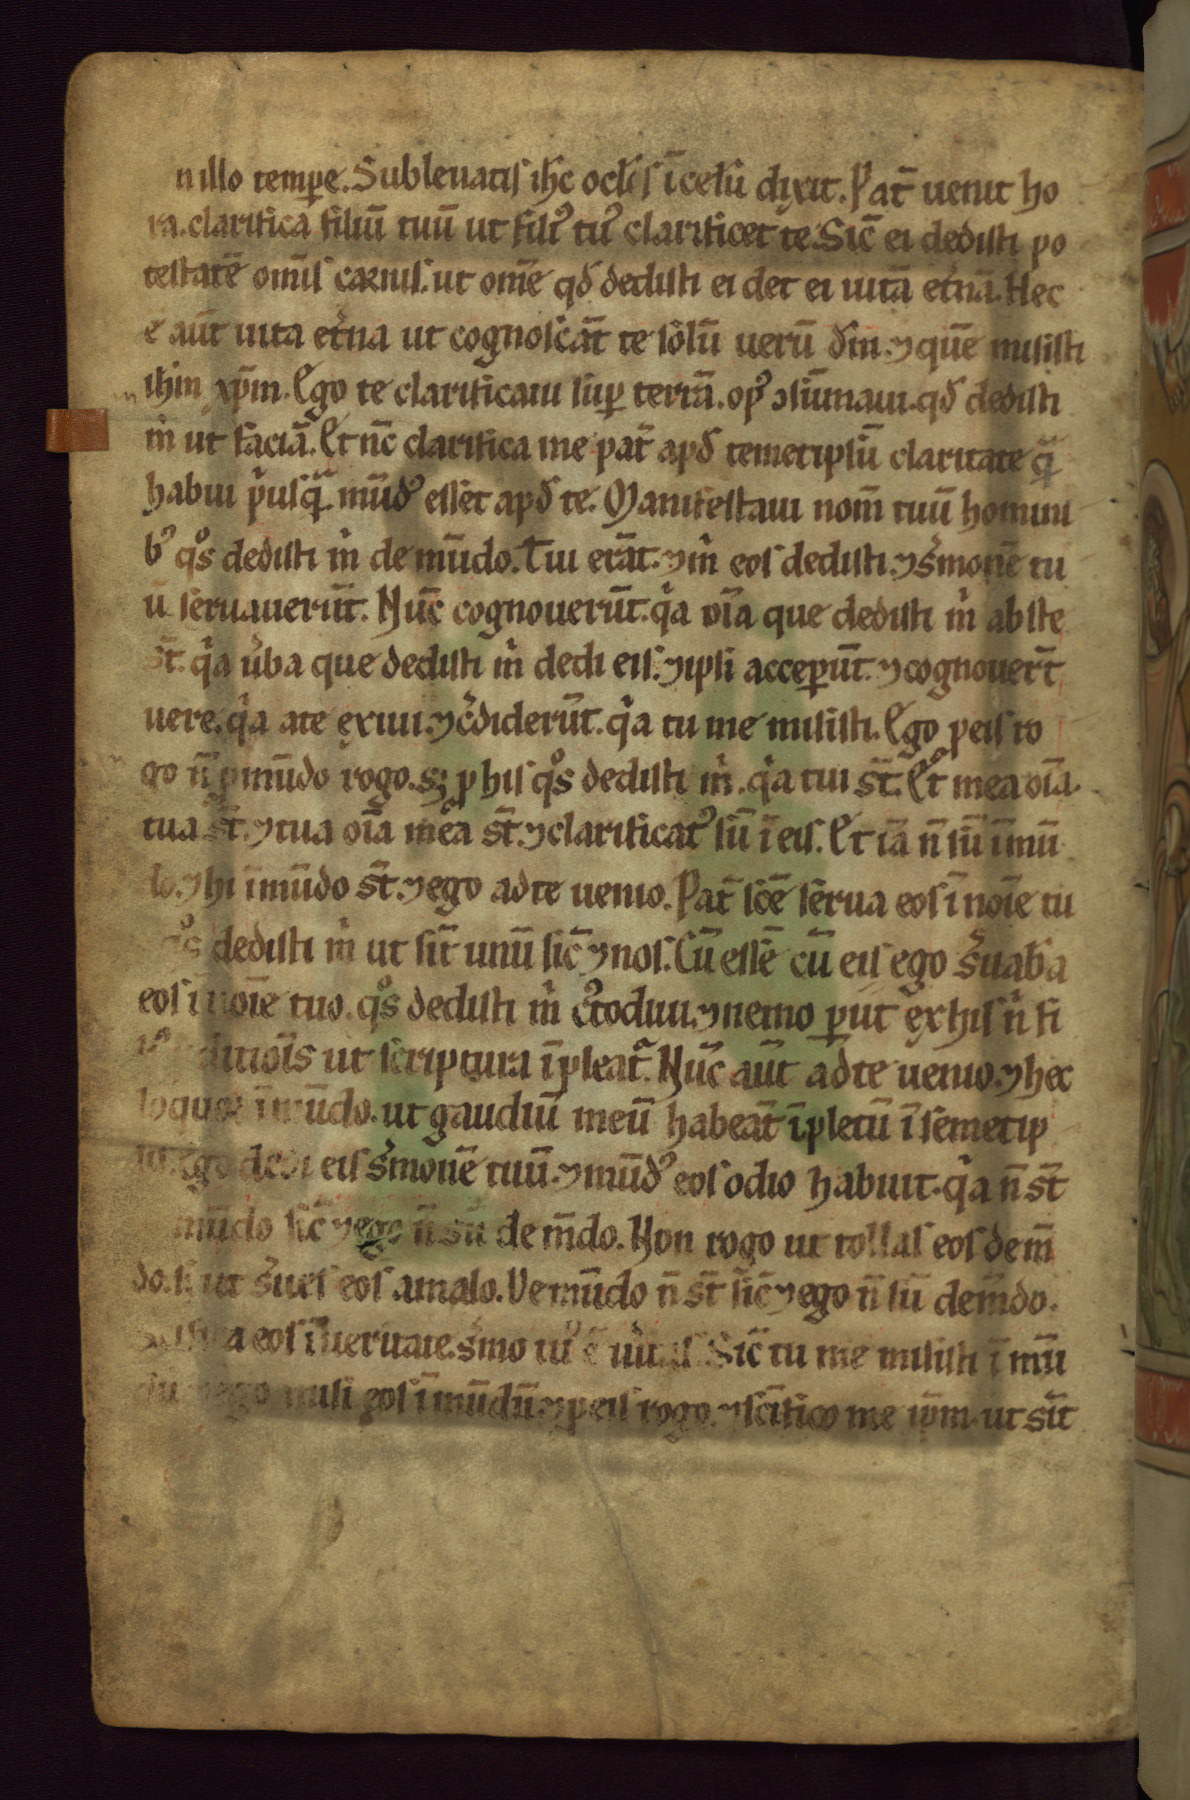 n illo tempe. Subleuatis ihc oclis ī celū dixit. Pat̄ uenit ho
ra. clarifica filiū tuū ut fili᾽ tu᾽ clarificet te. Sic̄ ei dedisti po
testatē omīs carnis. ut om̄e qđ dedisti ei det ei uitā et̄nā. Hec
ē aūt uita et̄na ut cognoscāt te solū uerū đm. ⁊ quē misisti
ihm xp̄m. Ego te clarificaui sup̱ terrā. op᾽ ɔsūmaui. qđ dedisti
m̄ ut faciā. Et nc̄ clarifica me pat̄ apđ temetipsū claritate q̄
habui p̄usq̄ mūđ᾽ esset apđ te. Manifestaui nom̄ tuū homini
b᾽ qͦs dedisti m̄ de mūdo. Tui erāt. ⁊ m̄ eos dedisti. ⁊ s̄monē tu
ū seruauerūt. Nūc cognouerūt. qͥa oīa que dedisti m̄ abs te
s̄t. qͥa ūba que dedisti m̄ dedi eis. ⁊ ipsi acceperūt. ⁊ cognouer̄t
uere. qͥa a te exiui. ⁊ c̄diderūt. qͥa tu me misisti. Ego p eis ro
go n̄ p mūdo rogo. sꝫ p his qͦs dedisti m̄. qͥa tui s̄t. Et mea oīa
tua s̄t. ⁊ tua oīa mea s̄t. ⁊ clarificat᾽ sū ī eis. Et iā n̄ sū ī mū
do. ⁊ hi ī mūdo s̄t. ⁊ ego ad te uenio. Pat̄ sc̄e serua eos ī noīe tu
qͦs dedisti m̄ ut sīt unū sic̄ ⁊ nos. Cū essē cū eis ego s̄uaba
eos ī noīe tuo. qͦs dedisti m̄ c᾽todiui. ⁊ nemo p̱iit ex his n̄ fi
ditiois ut scriptura īpleat᾽. Nūc aūt ad te uenio. ⁊ hec
loquor ī mūdo. ut gaudiū meū habeāt īpletū ī semetip
Ego dedi eis s̄monē tuū. ⁊ mūđ᾽ eos odio habuit. qͥa n̄ s̄t
mūdo sic̄ ⁊ ego n̄ sū de m̄do. Non rogo ut tollas eos de m̄
do. s; ut s̄ues eos a malo. De mūdo n̄ s̄t sic̄ ⁊ ego n̄ sū de m̄do.
eos ī ueritate. s̄mo tu᾽ ē Sic̄ tu me misisti ī mū
ego misi eos ī mūdū. ⁊ p eis rogo. ⁊ sc̄ifico me ip̄m. ut sīt